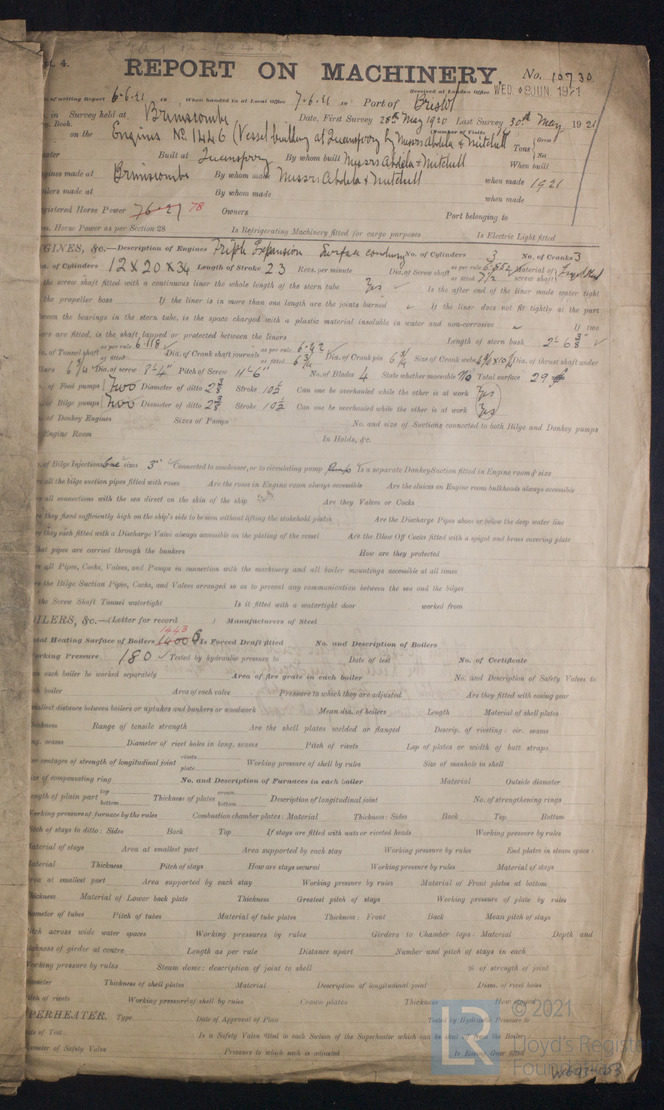 REPORT ON MACHINERY. No. 10730
Received at London Office WED. 8 JUN 1921
of writing Report 6.6.21 19 When handed in at Local Office 7.6.21 19 Port of Bristol
in Survey held at Brimscombe Date, First Survey 28th May 1920 Last Survey 30th May 1921
Book. (Number of Visits
on the Engines No. 1446 (Vessel building at Queensferry by Messrs Abdela & Mitchell Tons Gross Net
Built at Queensferry By whom built Messrs Abdela & Mitchell When built
made at Brimscombe By whom made Messrs Abdela & Mitchell when made 1921
made at By whom made when made
Registered Horse Power 78 Owners Port belonging to
Horse Power as per Section 28 Is Refrigerating Machinery fitted for cargo purposes Is Electric Light fitted
ENGINES, &c.—Description of Engines Triple Expansion Surface condensing No. of Cylinders 3 No. of Cranks 3
of Cylinders 12 X 20 X 34 Length of Stroke 23 Revs. per minute Dia. of Screw shaft as per rule as fitted 7 1/2 Material of screw shaft
the screw shaft fitted with a continuous liner the whole length of the stern tube Yes Is the after end of the liner made water tight
the propeller boss If the liner is in more than one length are the joints burned If the liner does not fit tightly at the part
between the bearings in the stern tube, is the space charged with a plastic material insoluble in water and non-corrosive If two
liners are fitted, is the shaft lapped or protected between the liners Length of stern bush 2' 6 3/8"
of Tunnel shaft as per rule 6.118 as fitted Dia. of Crank shaft journals as per rule as fitted 6 3/4 Dia. of Crank pin 6 3/4 Size of Crank webs Dia. of thrust shaft under
collars 6 3/4 Dia. of screw 8'-4" Pitch of Screw 11'-6" No. of Blades 4 State whether moveable No Total surface 29
of Feed pumps Two Diameter of ditto 2 3/8 Stroke 10 1/2 Can one be overhauled while the other is at work Yes
of Bilge pumps Two Diameter of ditto 2 3/8 Stroke 10 1/2 Can one be overhauled while the other is at work Yes
of Donkey Engines Sizes of Pumps No. and size of Suctions connected to both Bilge and Donkey pumps
Engine Room In Holds, &c.
of Bilge Injections One sizes 3" Connected to condenser, or to circulating pump Pump Is a separate Donkey Suction fitted in Engine room & size
all the bilge suction pipes fitted with roses Are the roses in Engine room always accessible Are the sluices on Engine room bulkheads always accessible
all connections with the sea direct on the skin of the ship Are they Valves or Cocks
they fixed sufficiently high on the ship's side to be seen without lifting the stokehold plates Are the Discharge Pipes above or below the deep water line
they each fitted with a Discharge Valve always accessible on the plating of the vessel Are the Blow Off Cocks fitted with a spigot and brass covering plate
What pipes are carried through the bunkers How are they protected
all Pipes, Cocks, Valves, and Pumps in connection with the machinery and all boiler mountings accessible at all times
the Bilge Suction Pipes, Cocks, and Valves arranged so as to prevent any communication between the sea and the bilges
the Screw Shaft Tunnel watertight Is it fitted with a watertight door worked from
BOILERS, &c.—(Letter for record ) Manufacturers of Steel
1443
Total Heating Surface of Boilers Is Forced Draft fitted No. and Description of Boilers
Working Pressure 180 Tested by hydraulic pressure to Date of test No. of Certificate
each boiler be worked separately Area of fire grate in each boiler No. and Description of Safety Valves to
each boiler Area of each valve Pressure to which they are adjusted Are they fitted with easing gear
Smallest distance between boilers or uptakes and bunkers or woodwork Mean dia. of boilers Length Material of shell plates
Thickness Range of tensile strength Are the shell plates welded or flanged Descrip. of riveting: cir. seams
long. seams Diameter of rivet holes in long. seams Pitch of rivets Lap of plates or width of butt straps
Per centages of strength of longitudinal joint rivets plate Working pressure of shell by rules Size of manhole in shell
Size of compensating ring No. and Description of Furnaces in each boiler Material Outside diameter
Length of plain part top bottom Thickness of plates crown bottom Description of longitudinal joint No. of strengthening rings
Working pressure of furnace by the rules Combustion chamber plates: Material Thickness: Sides Back Top Bottom
Pitch of stays to ditto: Sides Back Top If stays are fitted with nuts or riveted heads Working pressure by rules
Material of stays Area at smallest part Area supported by each stay Working pressure by rules End plates in steam space:
Material Thickness Pitch of stays How are stays secured Working pressure by rules Material of stays
Area at smallest part Area supported by each stay Working pressure by rules Material of Front plates at bottom
Thickness Material of Lower back plate Thickness Greatest pitch of stays Working pressure of plate by rules
Diameter of tubes Pitch of tubes Material of tube plates Thickness: Front Back Mean pitch of stays
Pitch across wide water spaces Working pressures by rules Girders to Chamber tops: Material Depth and
thickness of girder at centre Length as per rule Distance apart Number and pitch of stays in each
Working pressure by rules Steam dome: description of joint to shell % of strength of joint
Diameter Thickness of shell plates Material Description of longitudinal joint Diam. of rivet holes
Pitch of rivets Working pressure of shell by rules Crown plates Thickness How
SUPERHEATER. Type Date of Approval of Plan Tested by Hydraulic Pressure to
Date of Test Is a Safety Valve fitted to each Section of the Superheater which can be shut off from the Boiler
Diameter of Safety Valve Pressure to which each is adjusted Is Easing Gear fitted
LR
© 2021
Lloyd's Register
Foundation